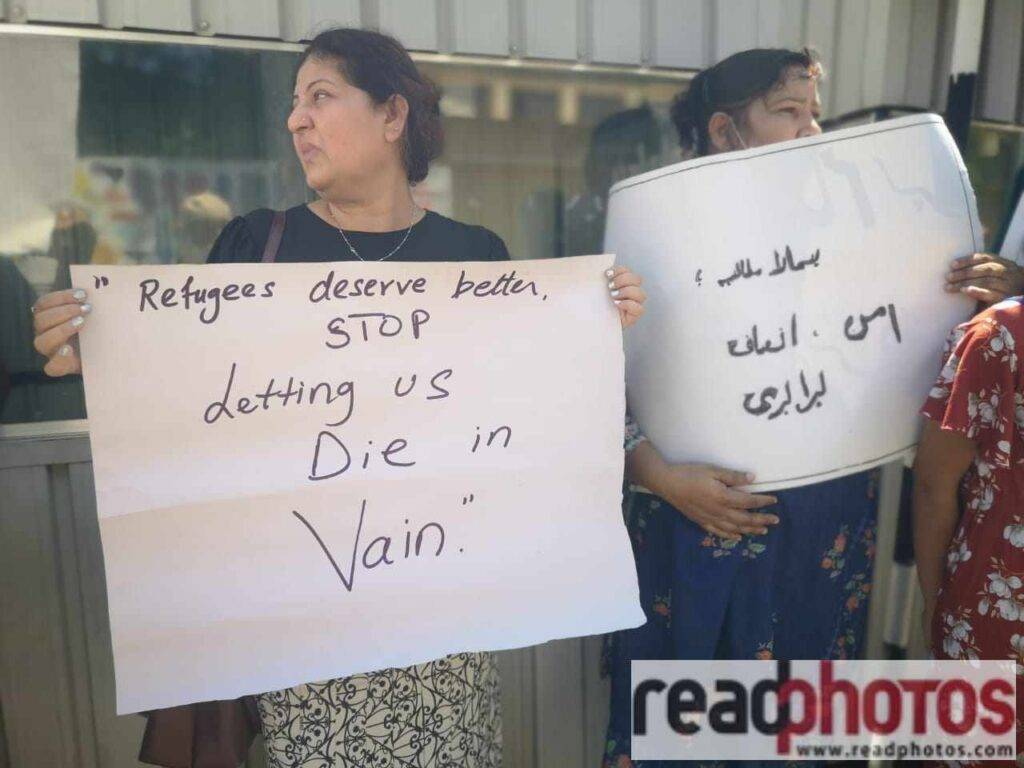 " Refugees deserve better,
STOP
Letting us
Die in
Vain."
ہمارا مطالبہ ؟
امن . انصاف
برابری
readphotos
www.readphotos.com